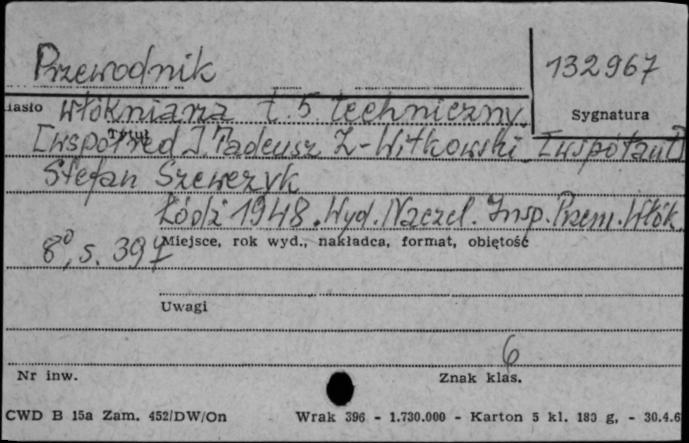 Przewodnik
132967
iasło włókniarza t. 5. techniczny.
Sygnatura
Tytuł
[współred.] Tadeusz Z-Witkowski [współaut]
Stefan Szewczyk
Łódź 1948. Wyd. Naczel. Insp. Przem. Włók.
Miejsce, rok wyd., nakładca, format, objętość
8°, s. 397
Uwagi
6
Nr inw.
Znak klas.
CWD B 15a Zam. 452/DW/On Wrak 396 - 1.730.000 - Karton 5 kl. 180 g, - 30.4.6